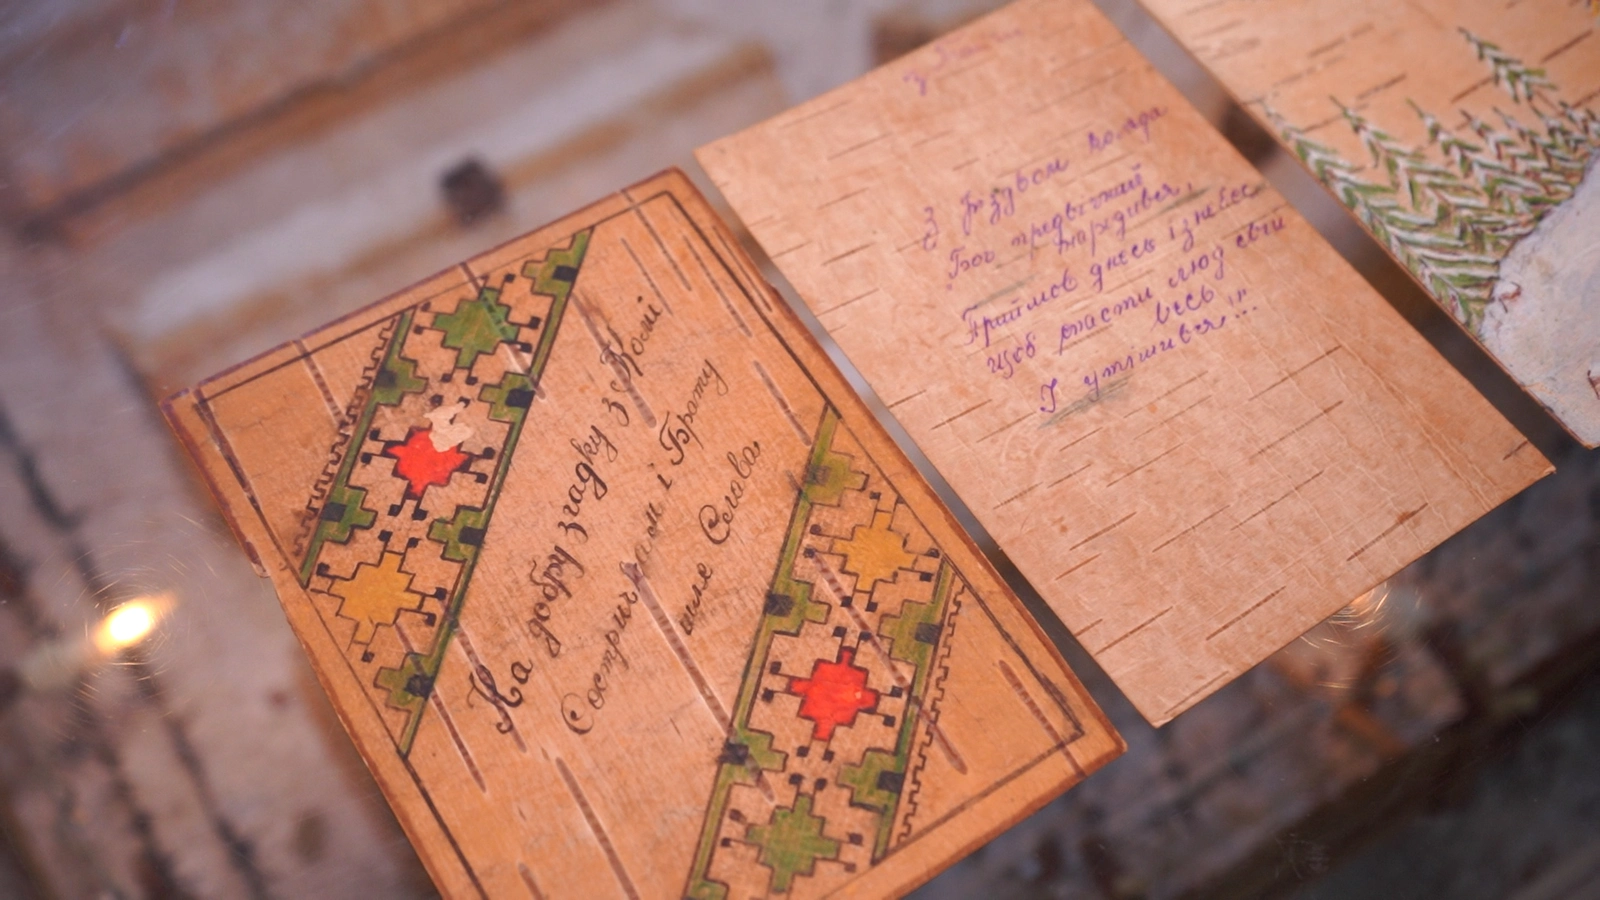 На добру згадку з Комі
Сестричкам і Брату
шле Слава
З Різдвом
Бог предвічний
народився,
Прийшов днесь із небес
Щоб спасти люд свій
весь
І утішився!!!...